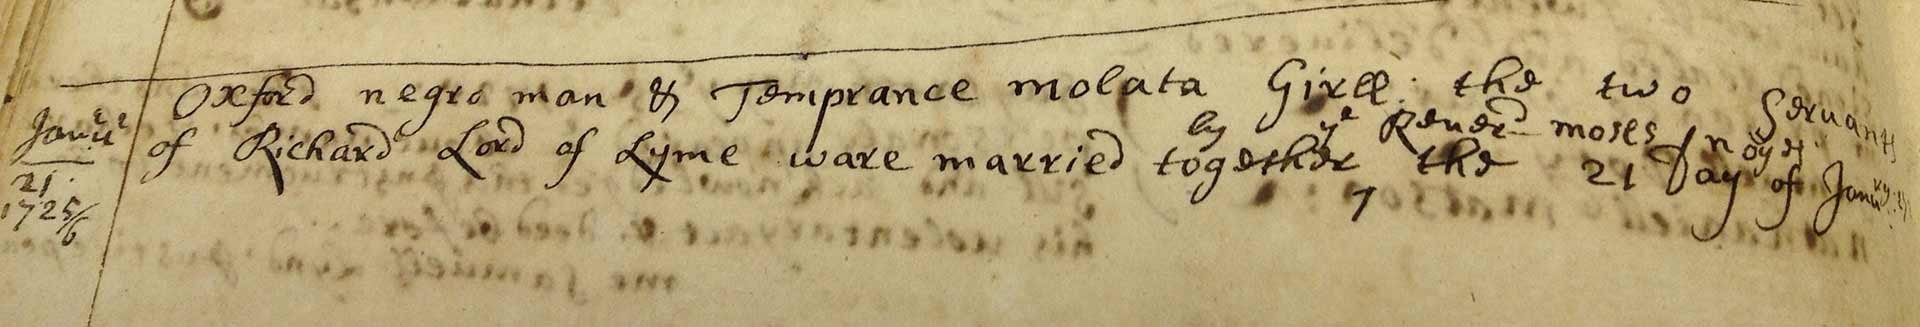 Oxford negro man & Temprance molata Girll: the two Servants
by ye Reverd moses noyes
of Richard Lord of Lyme ware married together the 21 Day of Janury
Janur
21
1725/6